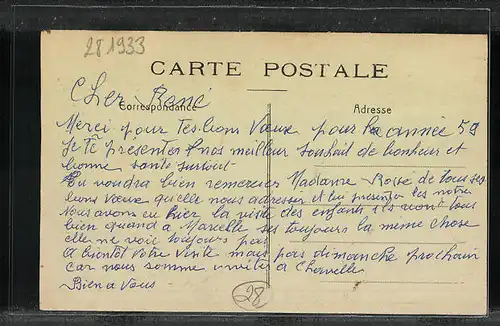 281933
CARTE POSTALE
Cher René
Correspondance
Adresse
Merci pour Tes bons Vœux pour la année 59
Je te présenter nos meilleur souhait de bonheur et
bonne santé surtout
Tu voudra bien remercier Madame de tous ses
bons Vœux quelle nous adresser et lui presenter les notre
Nous avons eu hier la visite des enfants ils vont tous
bien quand a Marcelle ses toujours la meme chose
elle ne voie toujours pas
a bientot votre visite mais pas dimanche prochain
Car nous somme inviter a
Bien a Vous
28